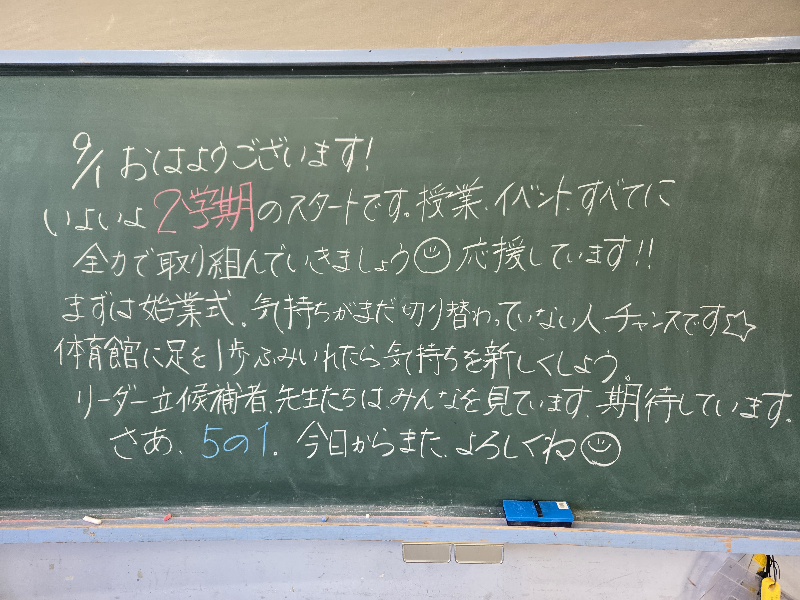 9/1 おはようございます!
いよいよ2学期のスタートです。授業、イベント、すべてに
全力で取り組んでいきましょう☺応援しています!!
まずは始業式。気持ちがまだ切り替わっていない人、チャンスです☆
体育館に足を1歩ふみいれたら、気持ちを新しくしよう。
リーダー立候補者、先生たちは、みんなを見ています。期待しています。
さあ、5の1。今日からまた、よろしくね☺